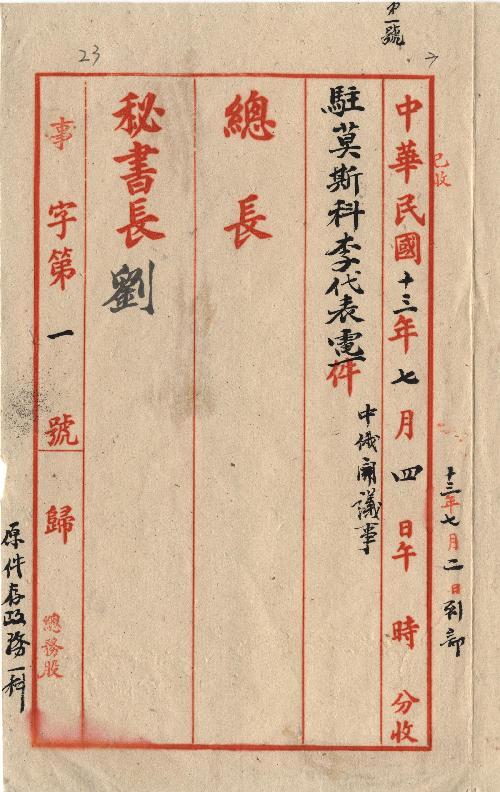 第一號
23
已收
十三年七月二日到部
中華民國十三年七月四日午 時 分收
駐莫斯科李代表電一件
中俄開議事
總長
秘書長 劉
事字第一號歸
總務股
原件存政務一科